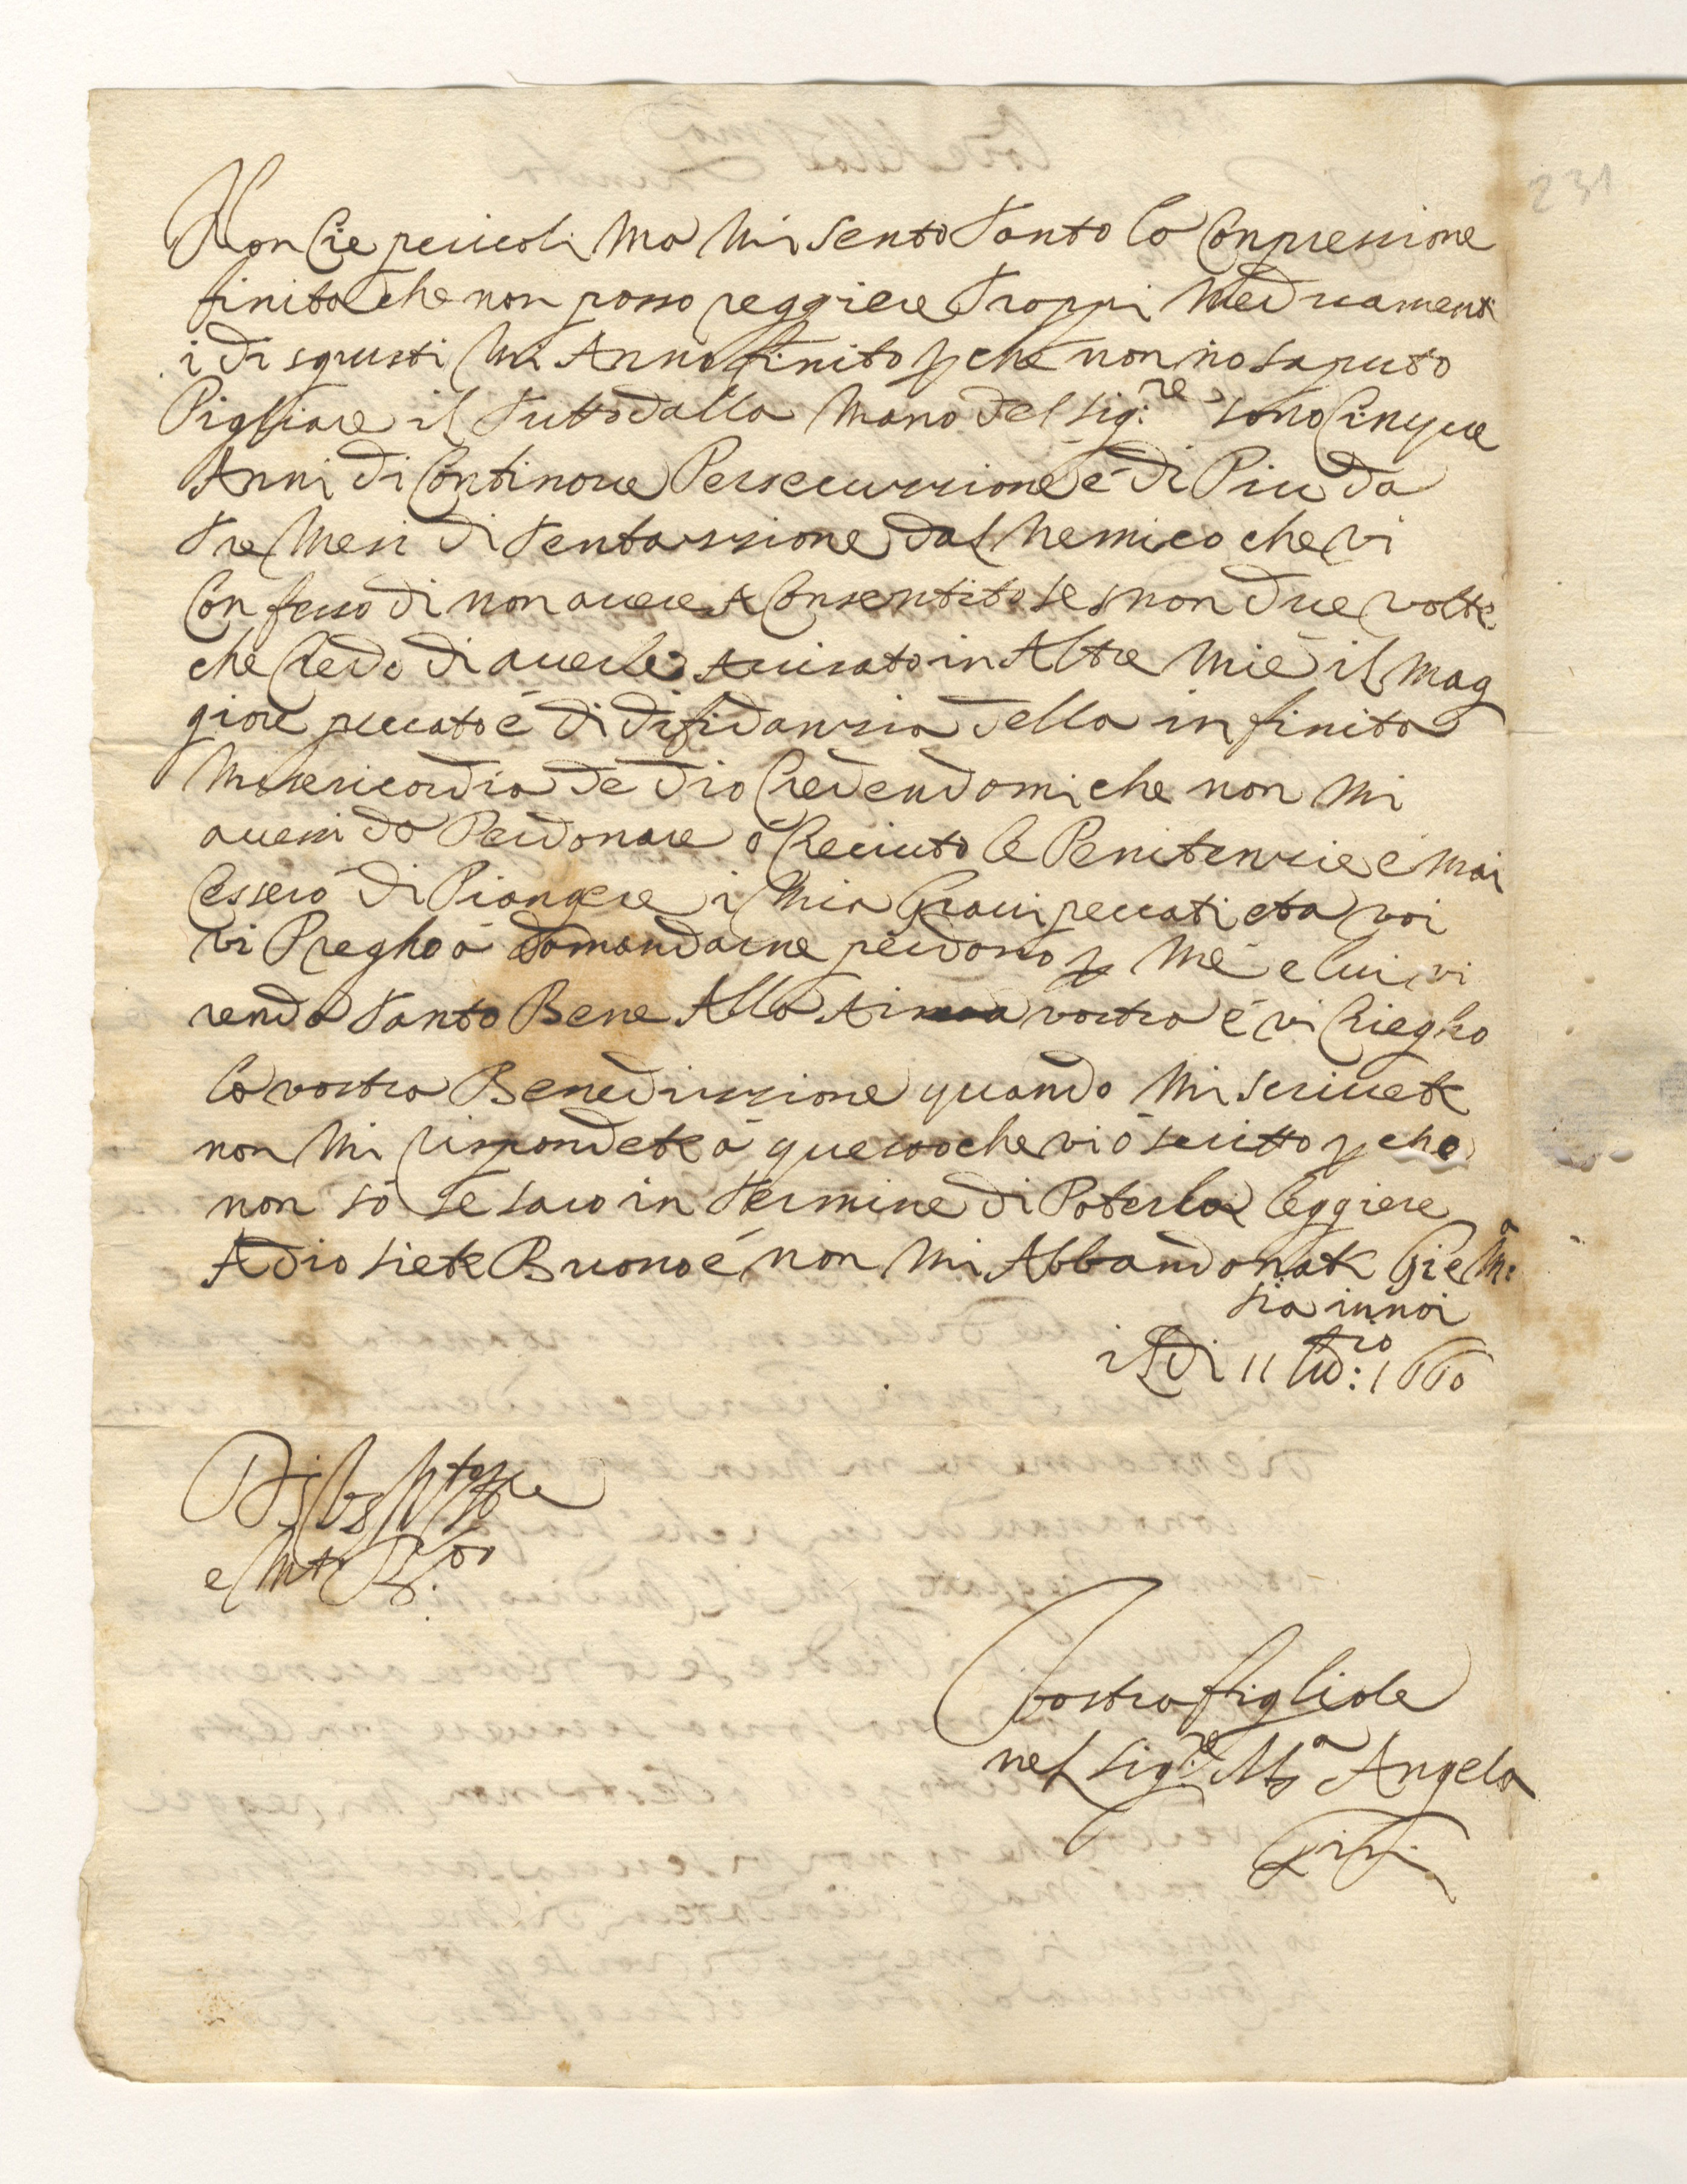 231
Non Cie pericoli Ma Mi Sento Tanto la Conpressione
finita che non posso reggiere Troppi Medicamenti
i disgusti Mi Anno finito p che non ho saputo
Pigliare il Tutto dalla Mano del Sig:re sono Cinque
Anni di Continove Persecuzzione é di Piu da
Tre Mesi di Tentazzione dal Nemico che vi
Confesso di non avere AConsentito se non due volte
che Credo di averle Avisato in Altre Mie il Mag
giore peccato é di difidanzia della infinita
Misericordia de Dio Credendomi che non Mi
avessi da Perdonare ó Ricciuto le Penitenzie é Mai
Cesseró di Piangere i Mia Gravi peccati et a voi
vi Pregho á domandarne perdono p Me é lui vi
renda Tanto Bene Alla Anima vostra é vi Chiegho
la vostra Benedizzione quando Mi scrivete
non Mi Rispondete á questo che vi ó scritto p che
non só se saro in Termine di Poterla leggiere
Adio siete Buono é non Mi Abbandonate Gie M:a
sia in noi
il di 11 1660
e
Vostra figliola
nel Sig:re Ma Angela
Gini